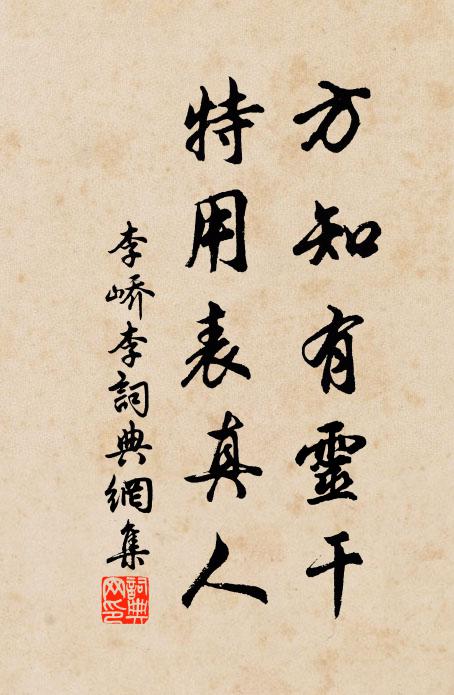 方知有靈干
特用表真人
李嶠李詞典網集
詞典网印